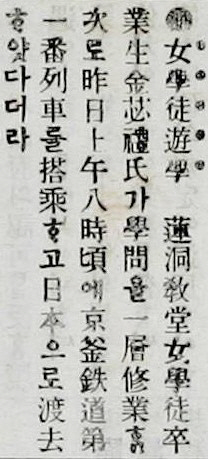 ●女學徒遊學　蓮洞敎堂女學徒卒
業生金苾禮氏가學問을一層修業ᄒᆞᆯ
次로昨日上午八時頃에京釜鉄道第
一番列車를搭乘ᄒᆞ고日本으로渡去
ᄒᆞ얏다더라